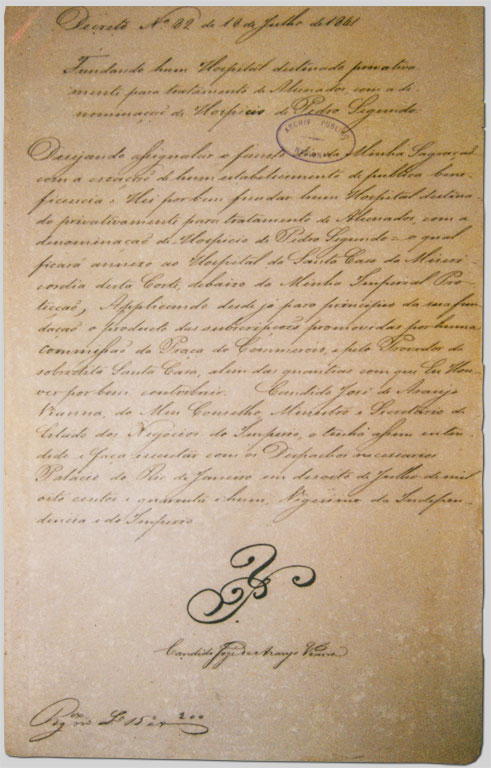 Decreto Nº 82 de 18 de Julho de 1841
Fundando hum Hospital destinado privativa
mente para tratamento de Alienados, com a de
nominação de Hospicio de Pedro Segundo.
ARCHIVO PUBLICO
NACIONAL
Desejando assignalar o fausto dia da Minha Sagração
com a creação de hum estabelecimento de publica bene-
ficencia: Hei por bem fundar hum Hospital destina-
do privativamente para tratamento de Alienados, com a
denominação de = Hospicio de Pedro Segundo = o qual
ficará annexo ao Hospital da Santa Casa da Miseri-
cordia desta Corte, debaixo da Minha Imperial Pro-
tecção, Applicando desde já para principio da sua fun
dação o producto das subscripções promovidas por huma
commissão da Praça do Commercio, e pelo Provedor da
sobredita Santa Casa, alem das quantias com que Eu Hou-
ver por bem contribuir. Candido José de Araujo
Vianna, do Meu Conselho, Ministro e Secretario de
Estado dos Negocios do Imperio, o tenha assim enten-
dido e faça executar com os Despachos necessarios.
Palacio do Rio de Janeiro em desoito de Julho de mil
oito centos e quarenta e hum, Vigesimo da Indepen-
dencia e do Imperio
Candido José de Araujo Vianna